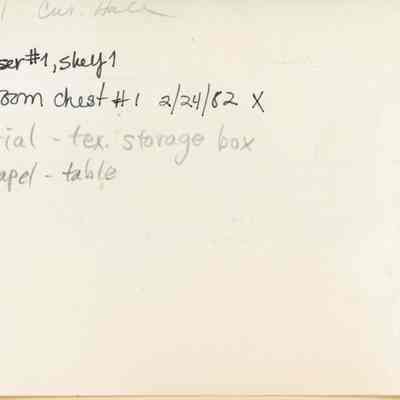 ser #1, shelf 1
oom chest #1 2/24/82 X
ial - tex. storage box
apel - table